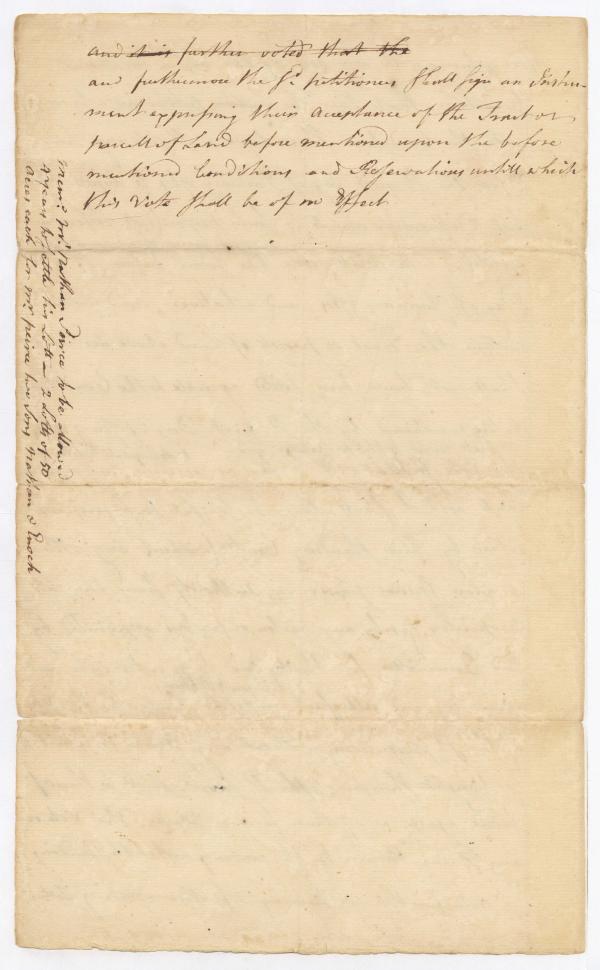 and it is further voted that the
and furthermore the Sd. petitioners shall sign an Instru-
ment expressing their acceptance of the Tract or
parcell of Land before mentioned upon the before
mentioned Conditions and Reservations untill which
this Vote shall be of no Effect
Mem: Mr. Nathan Peirce to be allowed
4 years to settle his Lott — 2 Lotts of 50
Acres each for Mr. peirce two Sons Nathan & Enoch